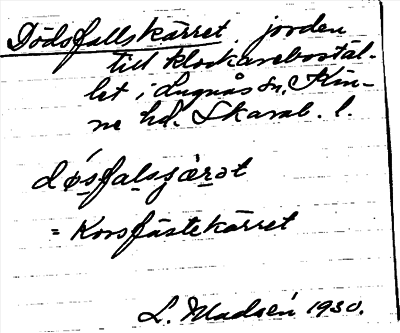 Dödsfallskärret, jorden
till klockarebostäl-
let i Lugnås sn, Kin-
ne hd. Skarab. l.
døsfalsɟærət
= Korsfästekärret
L. Madsén 1930.